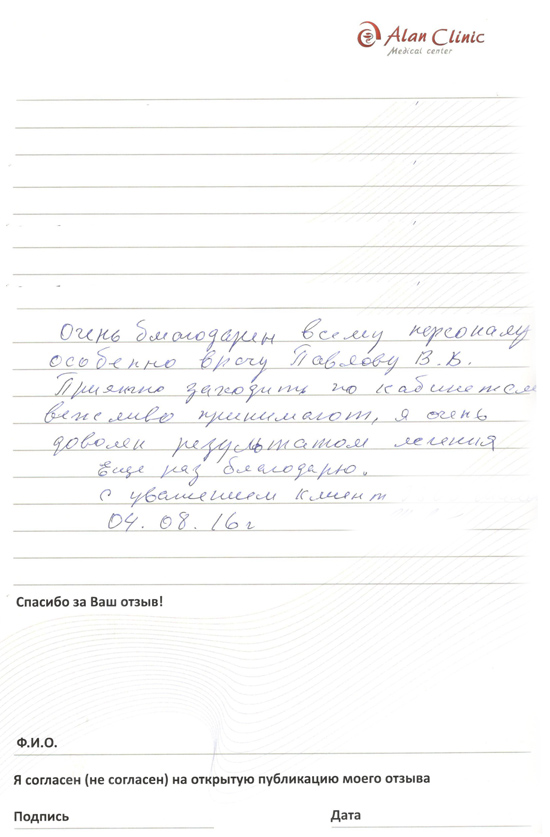 Alan Clinic
Medical center
Очень благодарен всему персоналу
особенно врачу Павлову В.В.
Приятно заходить по кабинетам
вежливо принимают, я очень
доволен результатом лечения
Еще раз благодарю.
С уважением клиент
04. 08. 16 г
Спасибо за Ваш отзыв!
Ф.И.О.
Я согласен (не согласен) на открытую публикацию моего отзыва
Подпись Дата